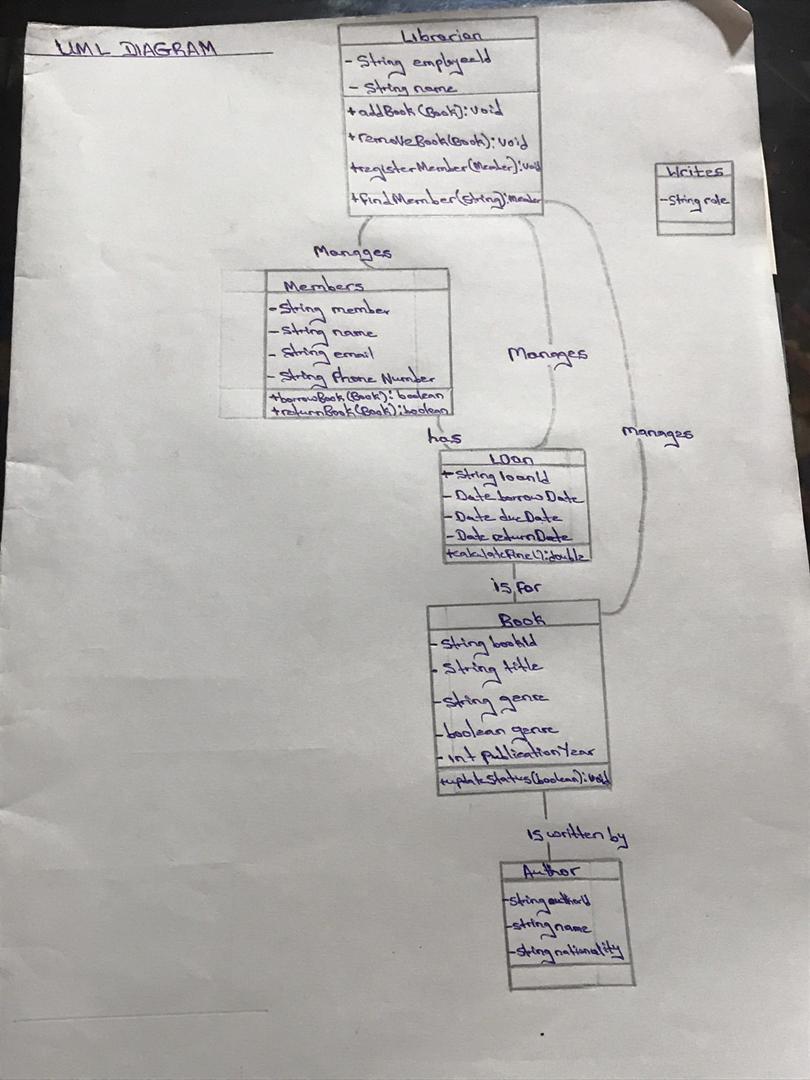 UML DIAGRAM
Librarian
- String employeeId
- String name
+addBook(Book): void
+removeBook(Book): void
+registerMember(Member): void
+findMember(String): member
Writes
-String role
Manages
Members
-String member
-String name
- String email
- String Phone Number
+borrowBook(Book): boolean
+returnBook(Book): boolean
Manages
has
Manages
Loan
+String loanId
- Date borrowDate
-Date dueDate
-Date returnDate
+calculateFine(): double
is for
Book
-String bookId
- String title
-String genre
-boolean genre
- int publicationYear
+updateStatus(boolean): void
is written by
Author
-String authorId
-String name
-String nationality